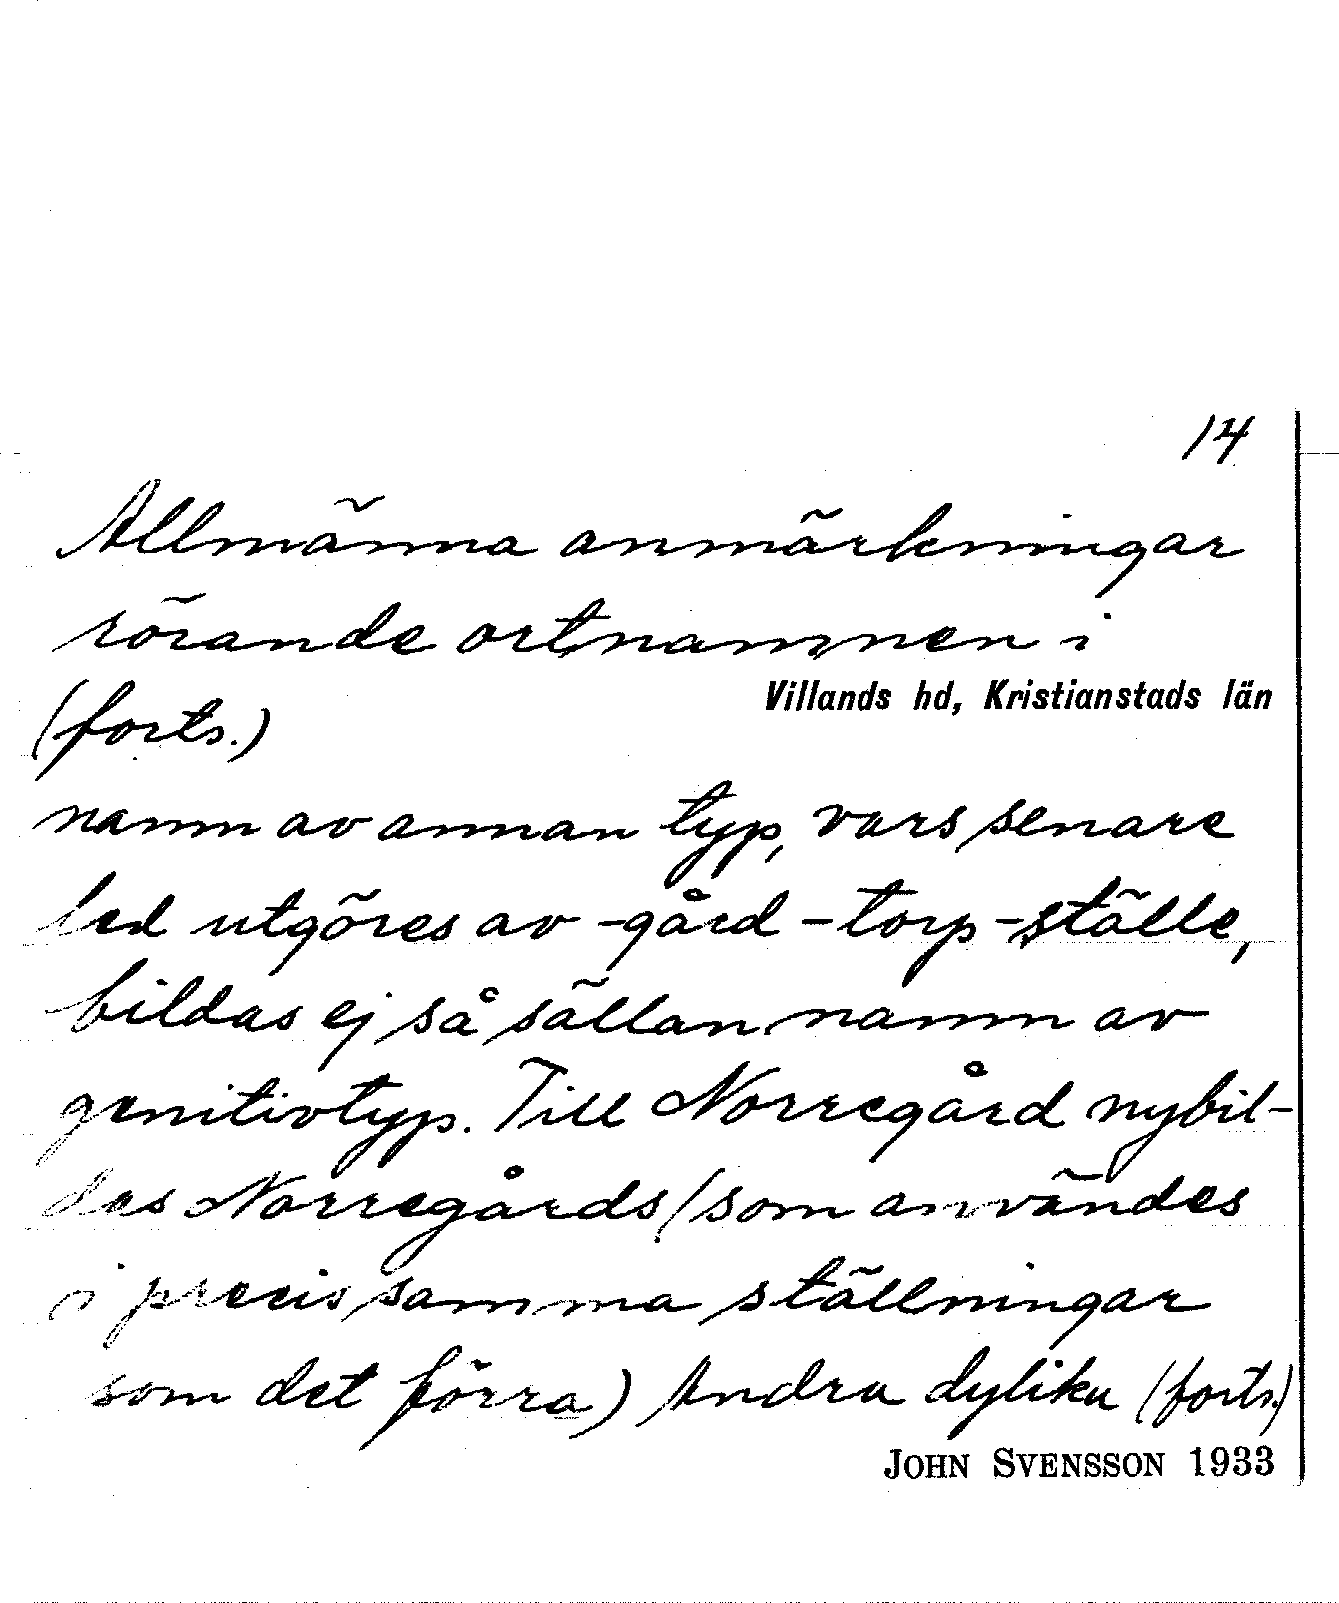 14
Allmänna anmärkningar
rörande ortnamnen i
Villands hd, Kristianstads län
(forts.)
namn av annan typ, vars senare
led utgöres av -gård -torp -ställe,
bildas ej så sällan namn av
genitivtyp. Till Norregård nybil-
das Norregårds (som användes
i precis samma ställningar
som det förra) Andra dylika (forts.)
JOHN SVENSSON 1933